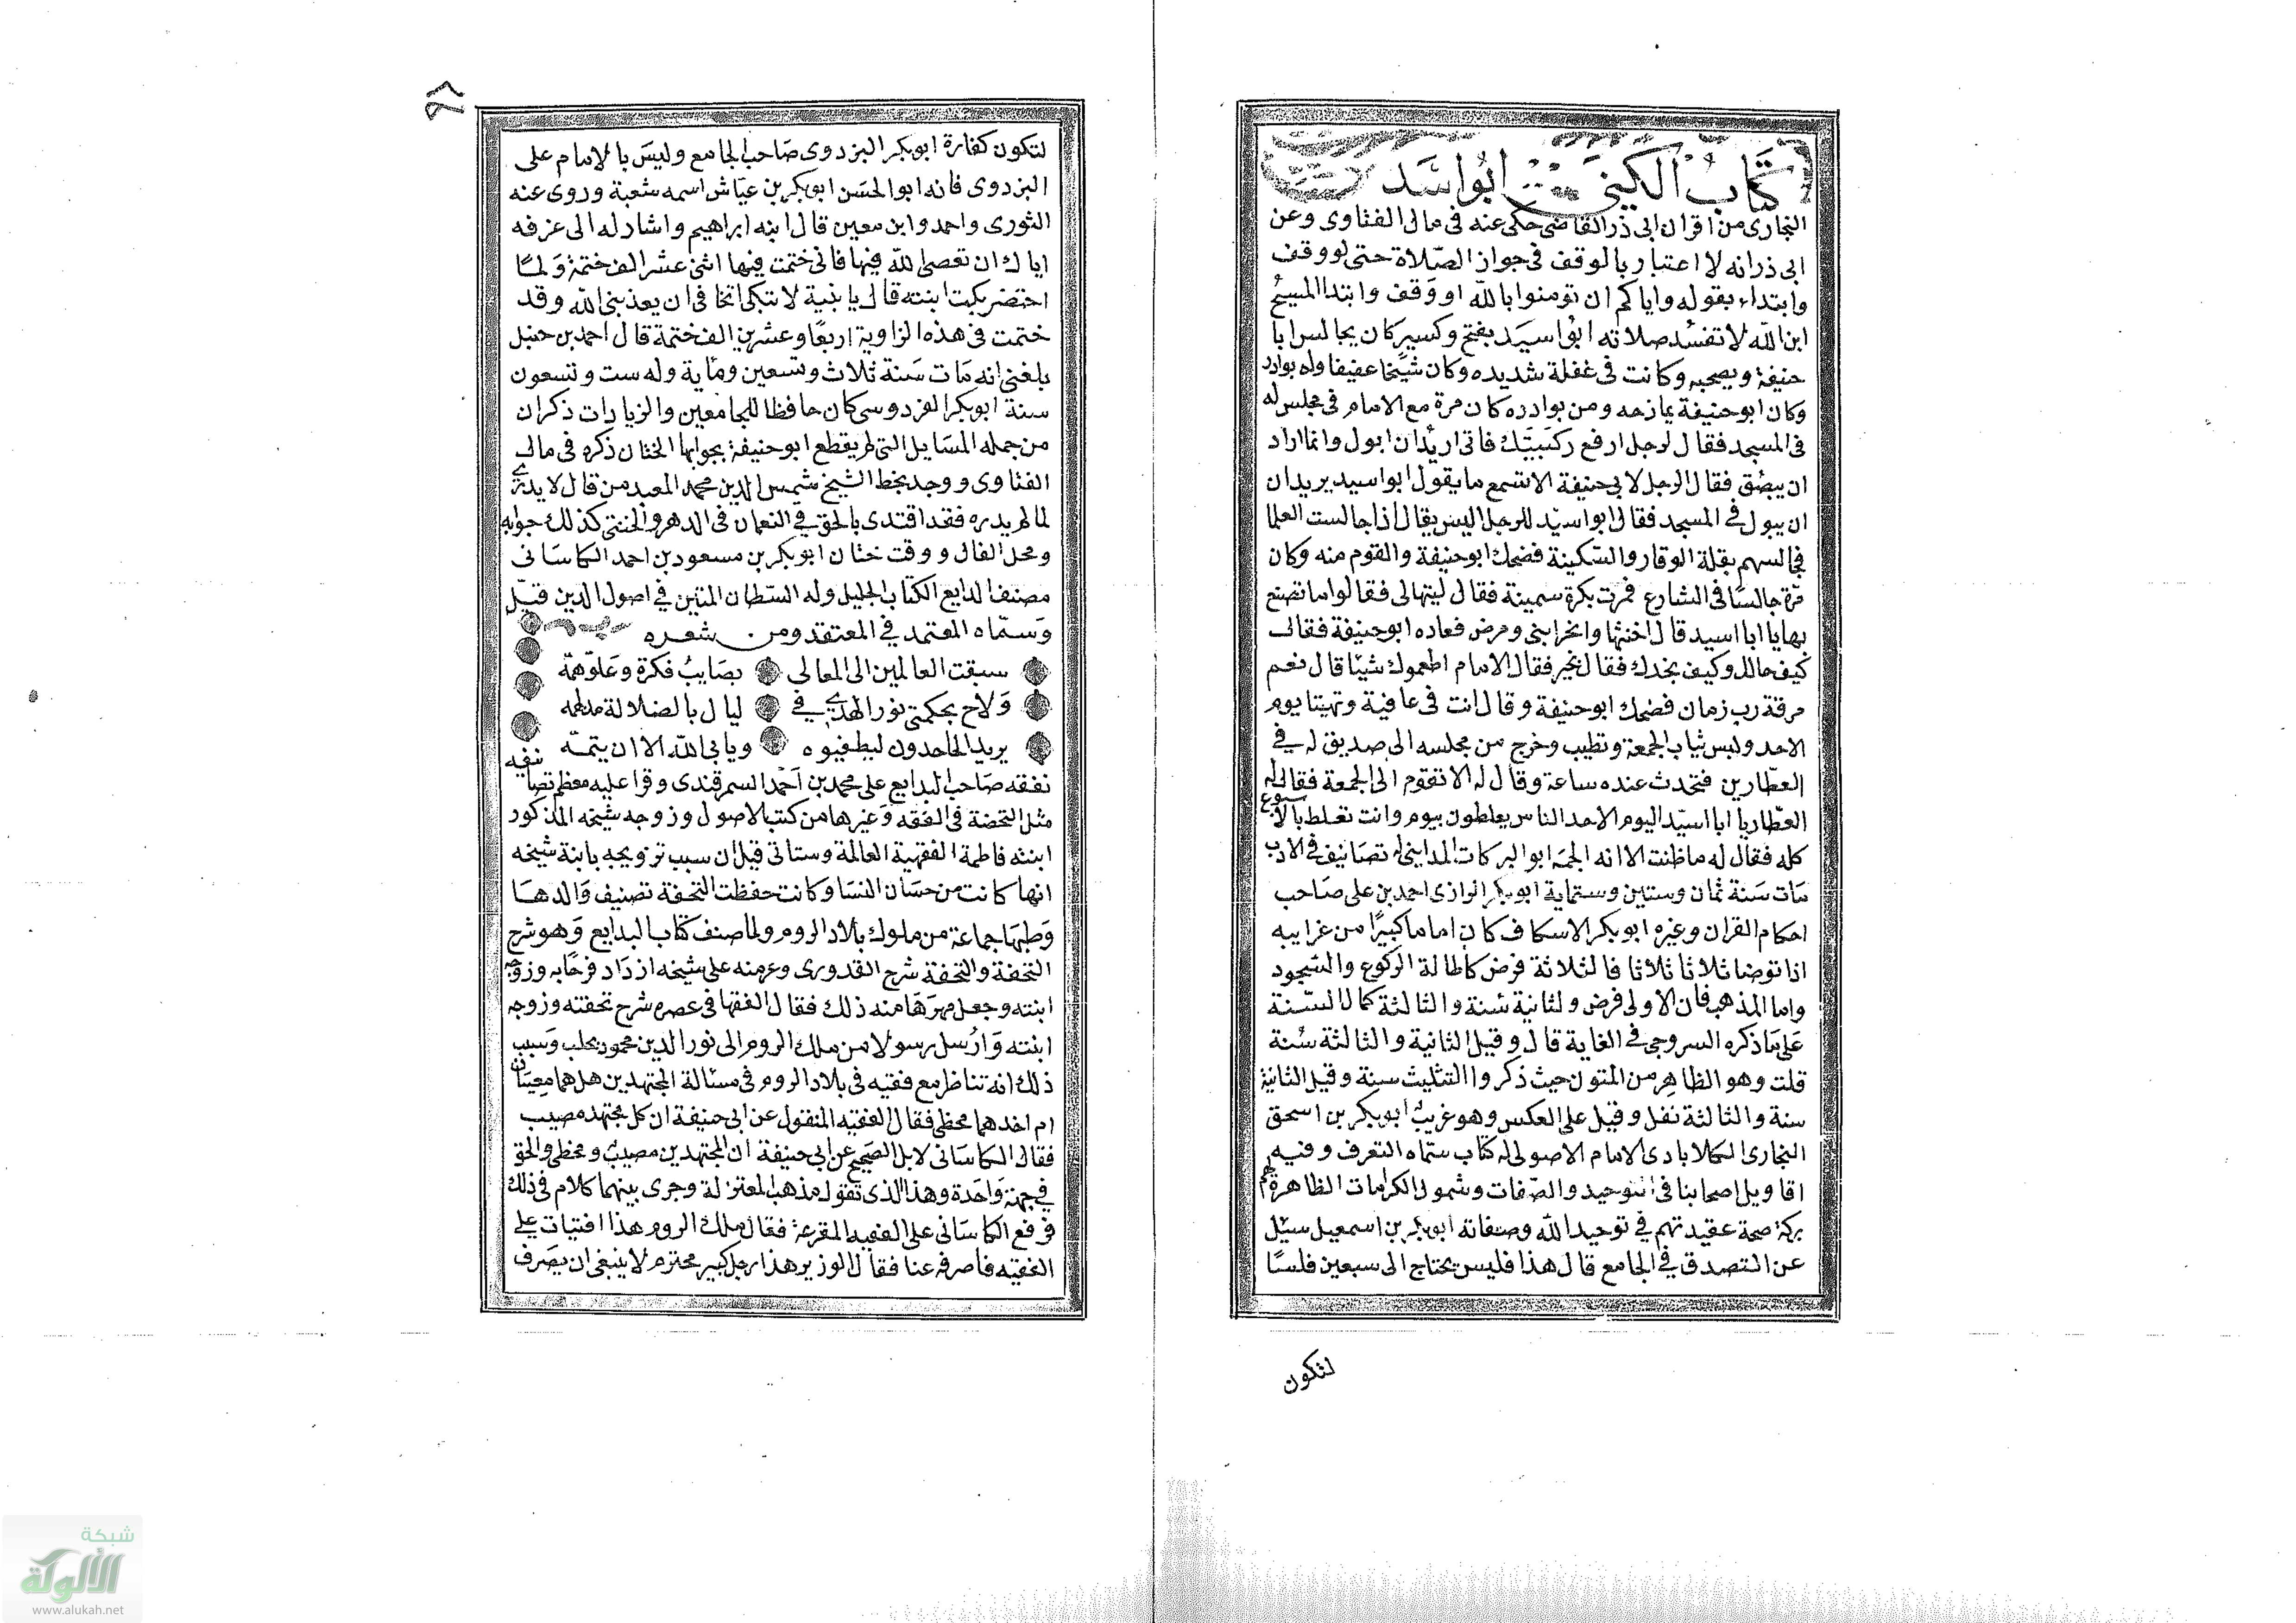 كتاب الكنى ابو اسد
النجارى من اقران ابى ذر القاضى حكى عنه فى مال الفتاوى وعن
ابى ذر انه لا اعتبار بالوقف فى جواز الصلاة حتى لو وقف
وابتداء بقوله واياكم ان تومنوا بالله او وقف وابتدا المسيح
ابن الله لا تفسد صلاته ابو اسيد بفتح وكسير كان يجالس ابا
حنيفة ويصحبه وكانت فى غفلة شديده وكان شيخا عفيفا وله بوادر
وكان ابو حنيفة يمازحه ومن بوادره كان مرة مع الامام فى مجلس له
فى المسجد فقال لرجل ارفع ركبتيك فانى اريد ان ابول وانما اراد
ان يبصق فقال الرجل لابى حنيفة الا تسمع ما يقول ابو اسيد يريد ان
ان يبول فى المسجد فقال ابو اسيد للرجل اليس يقال اذا جالست العلما
فجالسهم بقلة الوقار والسكينة فضحك ابو حنيفة والقوم منه وكان
مرة جالسا فى الشارع فمرت بكرة سمينة فقال ليتها لى فقالوا ما تصنع
بها يا ابا اسيد قال اختنها وانحر ابنى ومرض فعاده ابو حنيفة فقال
كيف حالك وكيف نجدك فقال بخير فقال الامام اطعموك شيئا قال نعم
مرقة رب زمان فضحك ابو حنيفة وقال انت فى عافية وتهيتا يوم
الاحد ولبس ثياب الجمعة وتطيب وخرج من مجلسه الى صديق له فى
العطارين فتحدث عنده ساعة وقال له الا تقوم الى الجمعة فقال له
العطار يا ابا اسيد اليوم الاحد الناس يغلطون بيوم وانت تغلط بالاسبوع
كله فقال له ما ظننت الا انه الجمعة ابو البركات المداينى له تصانيف فى الادب
مات سنة ثمان وستين وستماية ابو بكر الرازى احمد بن على صاحب
احكام القران وغيره ابو بكر الاسكاف كان اماما كبيرا من غرايبه
اذا توضا ثلاثا ثلاثا فالثلاثة فرض كاطالة الركوع والسجود
واما المذهب فان الاولى فرض والثانية سنة والثالثة كمال السنة
على ما ذكره السروجى فى الغاية قال وقيل الثانية والثالثة سنة
قلت وهو الظاهر من المتون حيث ذكروا التثليث سنة وقيل الثانية
سنة والثالثة نفل وقيل على العكس وهو غريب ابو بكر بن اسحق
النجارى الكلابادى الامام الاصولى له كتاب سماه التعرف وفيه
اقاويل اصحابنا فى التوحيد والصفات وشمول الكرامات الظاهرة لهم
بركة صحة عقيدتهم فى توحيد الله وصفاته ابو بكر بن اسمعيل سئل
عن التصدق فى الجامع قال هذا فليس يحتاج الى سبعين فلسا
لتكون
لتكون كفارة ابو بكر البزدوى صاحب الجامع وليس بالامام على
البزدوى فانه ابو الحسن ابو بكر بن عياش اسمه شعبة وروى عنه
الثورى واحمد وابن معين قال ابنه ابراهيم واشار له الى غرفه
اياك ان تعصى الله فيها فانى ختمت فيها اثنى عشر الف ختمة ولما
احتضر بكت ابنته قال يا بنية لا تبكى اتخافى ان يعذبنى الله وقد
ختمت فى هذه الزاوية اربعا وعشرين الف ختمة قال احمد بن حنبل
بلغنى انه مات سنة ثلاث وتسعين وماية وله ست وتسعون
سنة ابو بكر الفردوسى كان حافظا للجامعين والزيارات ذكر ان
من جمله المسايل التى لم يقطع ابو حنيفة بجوابها الختان ذكره فى مال
الفتاوى ووجد بخط الشيخ شمس الدين محمد المعيد من قال لا يدرى
لما لم يدره فقد اقتدى بالحق فى النعمان فى الدهر والخنثى كذلك جوابه
ومحل الفال ووقت ختان ابو بكر بن مسعود بن احمد الكاسانى
مصنف البدايع الكتاب الجليل وله السلطان المتين فى اصول الدين قيل
وسماه المعتمد فى المعتقد ومن شعره
سبقت العالمين الى المعالى بصايب فكرة وعلو همة
ولاح بحكمتى نور الهدى فى ليال بالضلالة مدلهمه
يريد الجاحدون ليطفيوه ويابى الله الا ان يتمه
تفقه صاحب البدايع على محمد بن احمد السمرقندى وقرا عليه معظم تصانيفه
مثل التحفة فى الفقه وغيرها من كتب الاصول وزوجه شيخه المذكور
ابنته فاطمة الفقهية العالمة وستاتى قيل ان سبب تزويجه بابنة شيخه
انها كانت من حسان النسا وكانت حفظت التحفة تصنيف والدها
وطلبها جماعة من ملوك بلاد الروم ولما صنف كتاب البدايع وهو شرح
التحفة والتحفة شرح القدورى وعرضه على شيخه ازداد فرحا به وزوجه
ابنته وجعل مهرها منه ذلك فقال الفقها فى عصره شرح تحفته وزوجه
ابنته وارسل رسولا من ملك الروم الى نور الدين محمود بحلب وسبب
ذلك انه تناظر مع فقيه فى بلاد الروم فى مسئالة المجتهدين هل هما مصيبان
ام احدهما مخطى فقال الفقيه المنقول عن ابى حنيفة ان كل مجتهد مصيب
فقال الكاسانى لا بل الصحيح عن ابى حنيفة ان المجتهدين مصيب ومخطى والحق
فى جهة واحدة وهذا الذى تقوله مذهب المعتزلة وجرى بينهما كلام فى ذلك
فرفع الكاسانى على الفقيه المقرعة فقال ملك الروم هذا افتيات على
الفقيه فاصرفه عنا فقال الوزير هذا رجل كبير محترم لا ينبغى ان يصرف
شبكة
الألوكة
www.alukah.net